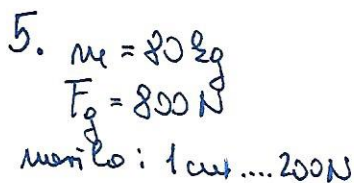 5. m = 80 kg
Fg = 800 N
merilo: 1 cm .... 200 N